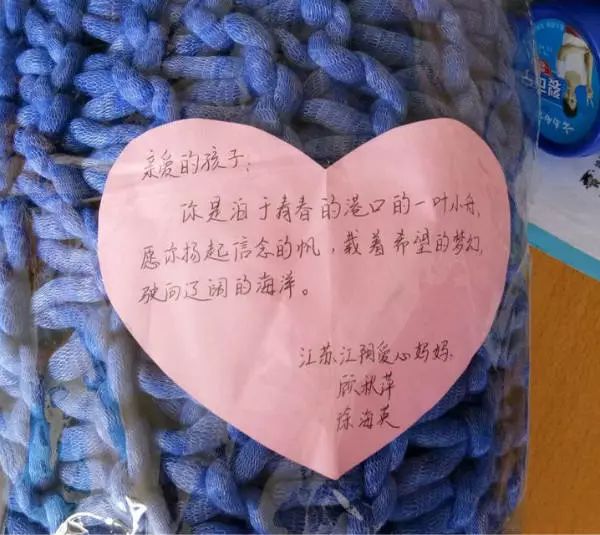 亲爱的孩子：
你是泊于青春的港口的一叶小舟，
愿你扬起信念的帆，载着希望的梦幻，
驶向辽阔的海洋。
江苏江阴爱心妈妈：
顾秋萍
徐海英